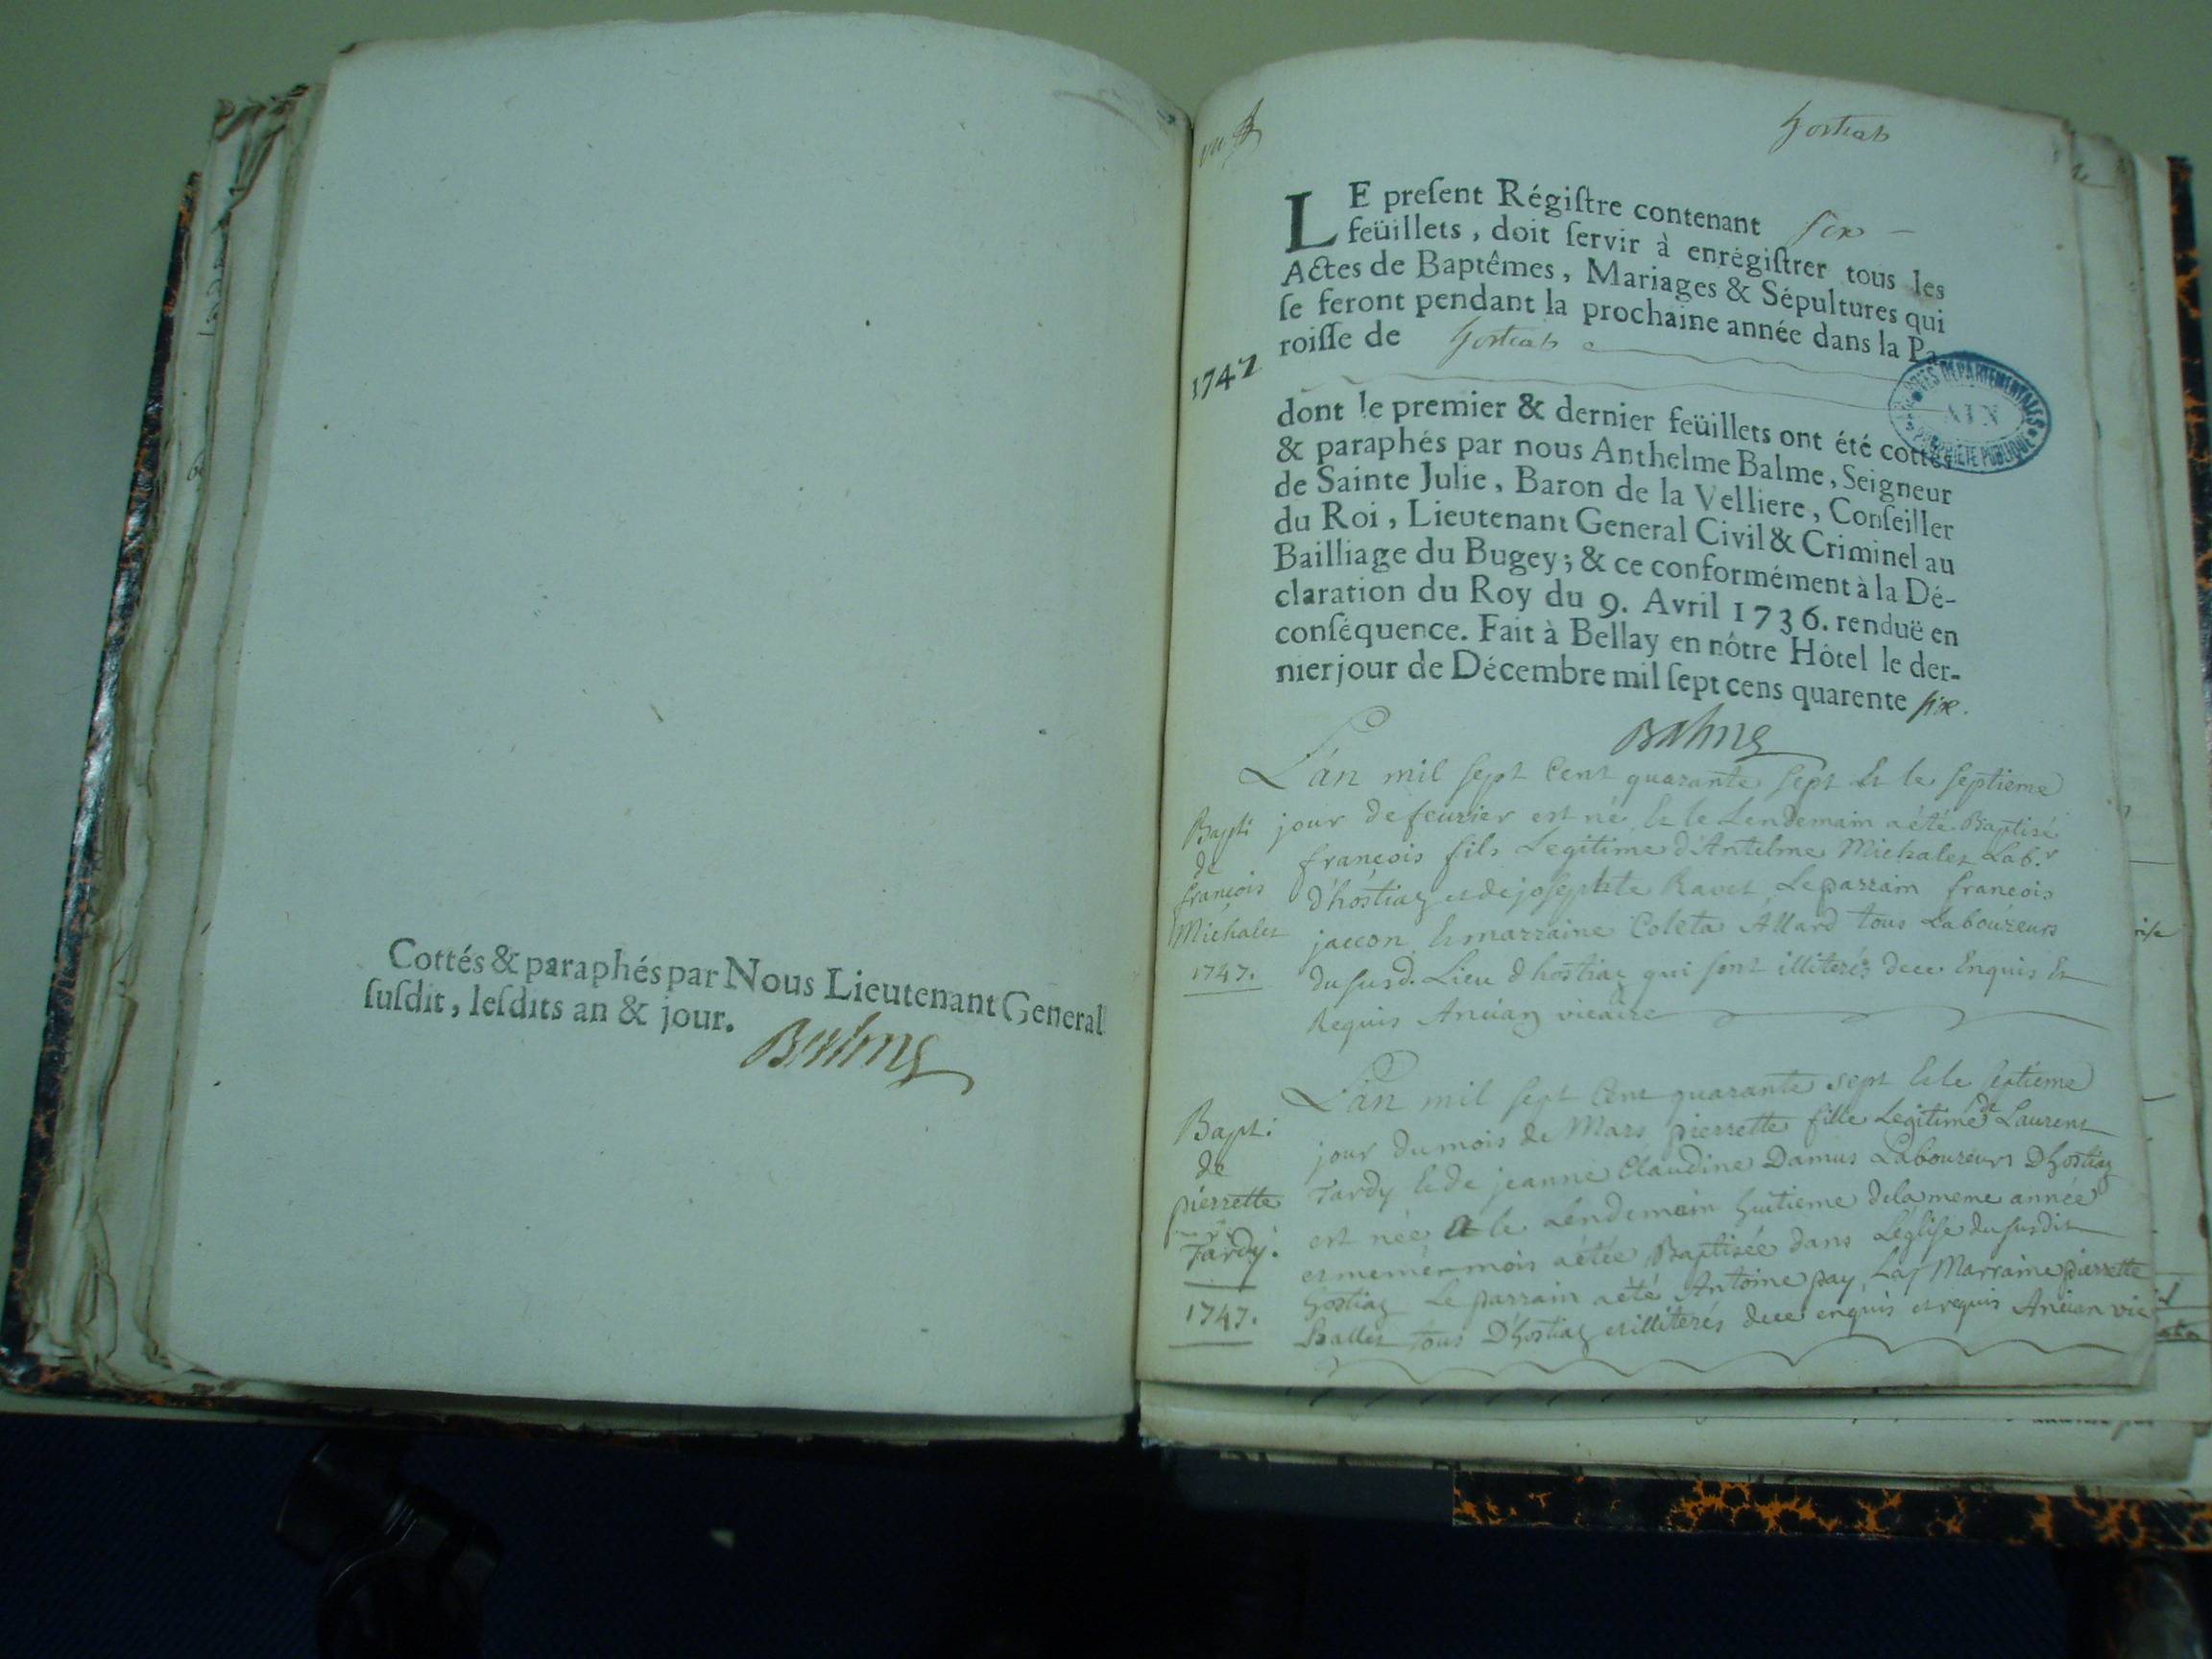 Cottés & paraphés par Nous Lieutenant General
ſuſdit, leſdits an & jour.
Balme
hostiaz
LE preſent Régiſtre contenant six
feüillets, doit ſervir à enrégiſtrer tous les
Actes de Baptêmes, Mariages & Sépultures qui
ſe feront pendant la prochaine année dans la Pa
roiſſe de hostiaz
1747
dont le premier & dernier feüillets ont été cottés
& paraphés par nous Anthelme Balme, Seigneur
de Sainte Julie, Baron de la Velliere, Conſeiller
du Roi, Lieutenant General Civil & Criminel au
Bailliage du Bugey; & ce conformément à la Dé-
claration du Roy du 9. Avril 1736. renduë en
conſéquence. Fait à Bellay en nôtre Hôtel le der-
nier jour de Décembre mil ſept cens quarente six.
Balme
ARCHIVES DÉPARTEMENTALES
AIN
PROPRIÉTÉ PUBLIQUE
Bapti
de
françois
Michalet
1747.
L'an mil sept Cent quarante sept Et le septieme
jour de feurier est né Et le Lendemain a été Baptisé
françois fils Legitime d'Antelme Michalet Lab.r
d'hostiaz et de josephte Ravet Le parrain françois
jaccon Et marraine Coleta Allard tous Laboureurs
du susd. Lieu d hostiaz qui sont illiterés de ce Enquis Et
Requis Ancian vicaire
Bapt:
de
pierrette
Tardy.
1747.
L'an mil sept Cent quarante sept Et le septieme
jour du mois de Mars pierrette fille Legitime de Laurent
Tardy Et de jeanne Claudine Damus Laboureurs D'hostiaz
est née et le Lendemain huitieme de la meme année
et meme mois a étée Baptisée dans L'église du susdit
hostiaz Le parrain a été Antoine pay La Marraine pierrette
tous D'hostiaz et illiterés de ce enquis et requis Ancian vic